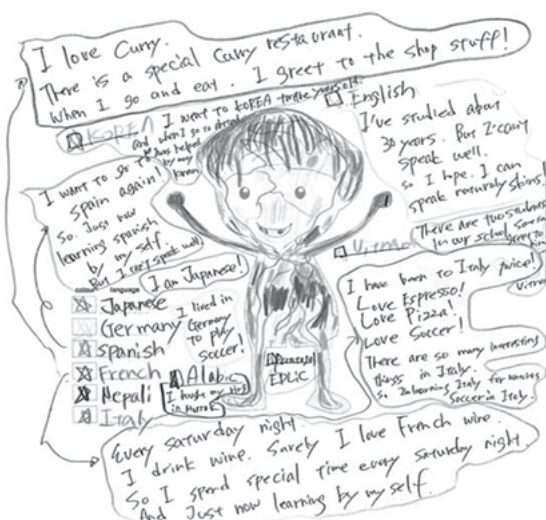 I love Curry.
There is a special Curry restaurant.
When I go and eat. I greet to the shop stuff!
KOREA
I want to KOREA
and when I go to
was helped
by my
English
I've studied about
30 years. But I can't
speak well.
so I hope. I can
speak naturaly
I want to go to
Spain again!
So. Just now
learning spanish
by my self.
But I can't speak well
There are two
in our school
I am Japanese!
colour language
Japanese
Germany
Spanish
French
Nepali
Italy
I lived in
Germany
to play
soccer!
Alabic
in
EDLiC
I have been to Italy twice!
Love Espresso!
Love Pizza!
Love Soccer!
There are so many interesting
things in Italy.
So Italy for
Soccer in Italy.
Every saturday night
I drink wine. Surely I love French wine.
So I spend special time every saturday night
And Just now learning by my self.